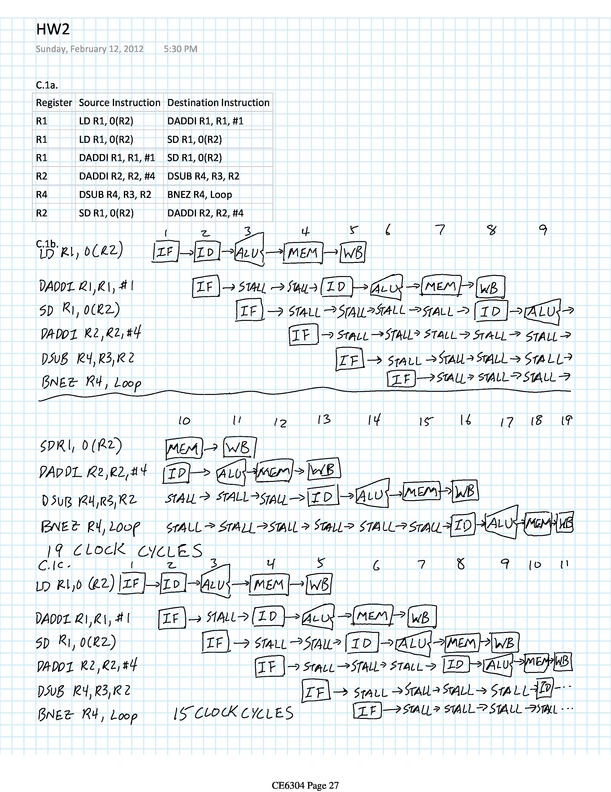 HW2
Sunday, February 12, 2012 5:30 PM
C.1a.
Register Source Instruction Destination Instruction
R1 LD R1, 0(R2) DADDI R1, R1, #1
R1 LD R1, 0(R2) SD R1, 0(R2)
R1 DADDI R1, R1, #1 SD R1, 0(R2)
R2 DADDI R2, R2, #4 DSUB R4, R3, R2
R4 DSUB R4, R3, R2 BNEZ R4, Loop
R2 SD R1, 0(R2) DADDI R2, R2, #4
1 2 3 4 5 6 7 8 9
C.1b.
LD R1, 0(R2) IF → ID → ALU → MEM → WB
DADDI R1, R1, #1 IF → STALL → STALL → ID → ALU → MEM → WB
SD R1, 0(R2) IF → STALL → STALL → STALL → STALL → ID → ALU →
DADDI R2, R2, #4 IF → STALL → STALL → STALL → STALL → STALL →
DSUB R4, R3, R2 IF → STALL → STALL → STALL → STALL →
BNEZ R4, Loop IF → STALL → STALL → STALL →
10 11 12 13 14 15 16 17 18 19
SD R1, 0(R2) MEM → WB
DADDI R2, R2, #4 ID → ALU → MEM → WB
DSUB R4, R3, R2 STALL → STALL → STALL → ID → ALU → MEM → WB
BNEZ R4, Loop STALL → STALL → STALL → STALL → STALL → STALL → ID → ALU → MEM → WB
19 CLOCK CYCLES
C.1c. 1 2 3 4 5 6 7 8 9 10 11
LD R1, 0(R2) IF → ID → ALU → MEM → WB
DADDI R1, R1, #1 IF → STALL → ID → ALU → MEM → WB
SD R1, 0(R2) IF → STALL → STALL → ID → ALU → MEM → WB
DADDI R2, R2, #4 IF → STALL → STALL → STALL → ID → ALU → MEM → WB
DSUB R4, R3, R2 IF → STALL → STALL → STALL → STALL → ID ...
BNEZ R4, Loop 15 CLOCK CYCLES IF → STALL → STALL → STALL → STALL ...
CE6304 Page 27